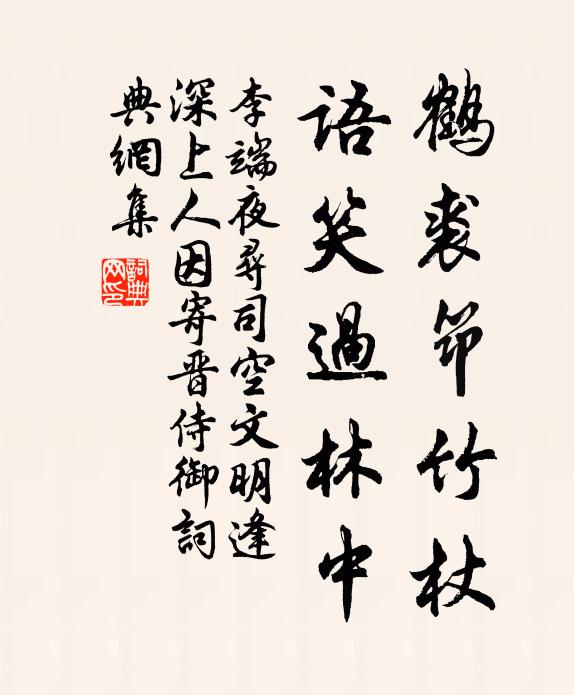 鶴裘筇竹杖
語笑過林中
李端夜尋司空文明逢
深上人因寄晋侍御詞
典網集
詞典网印